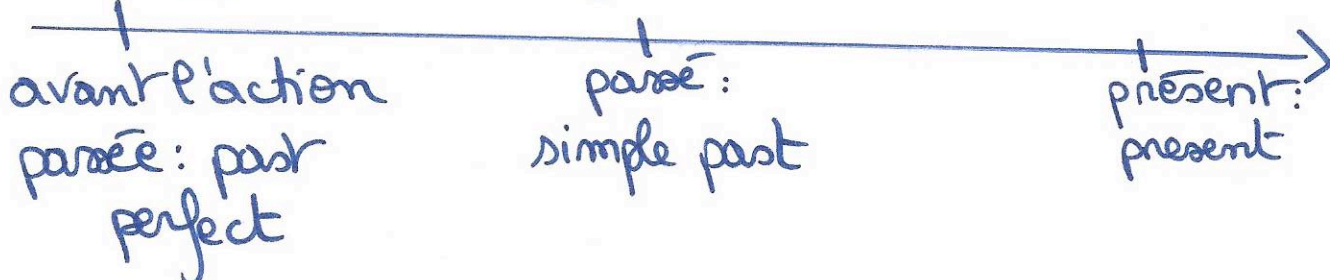 avant l'action
passée : past
perfect
passé :
simple past
présent :
present